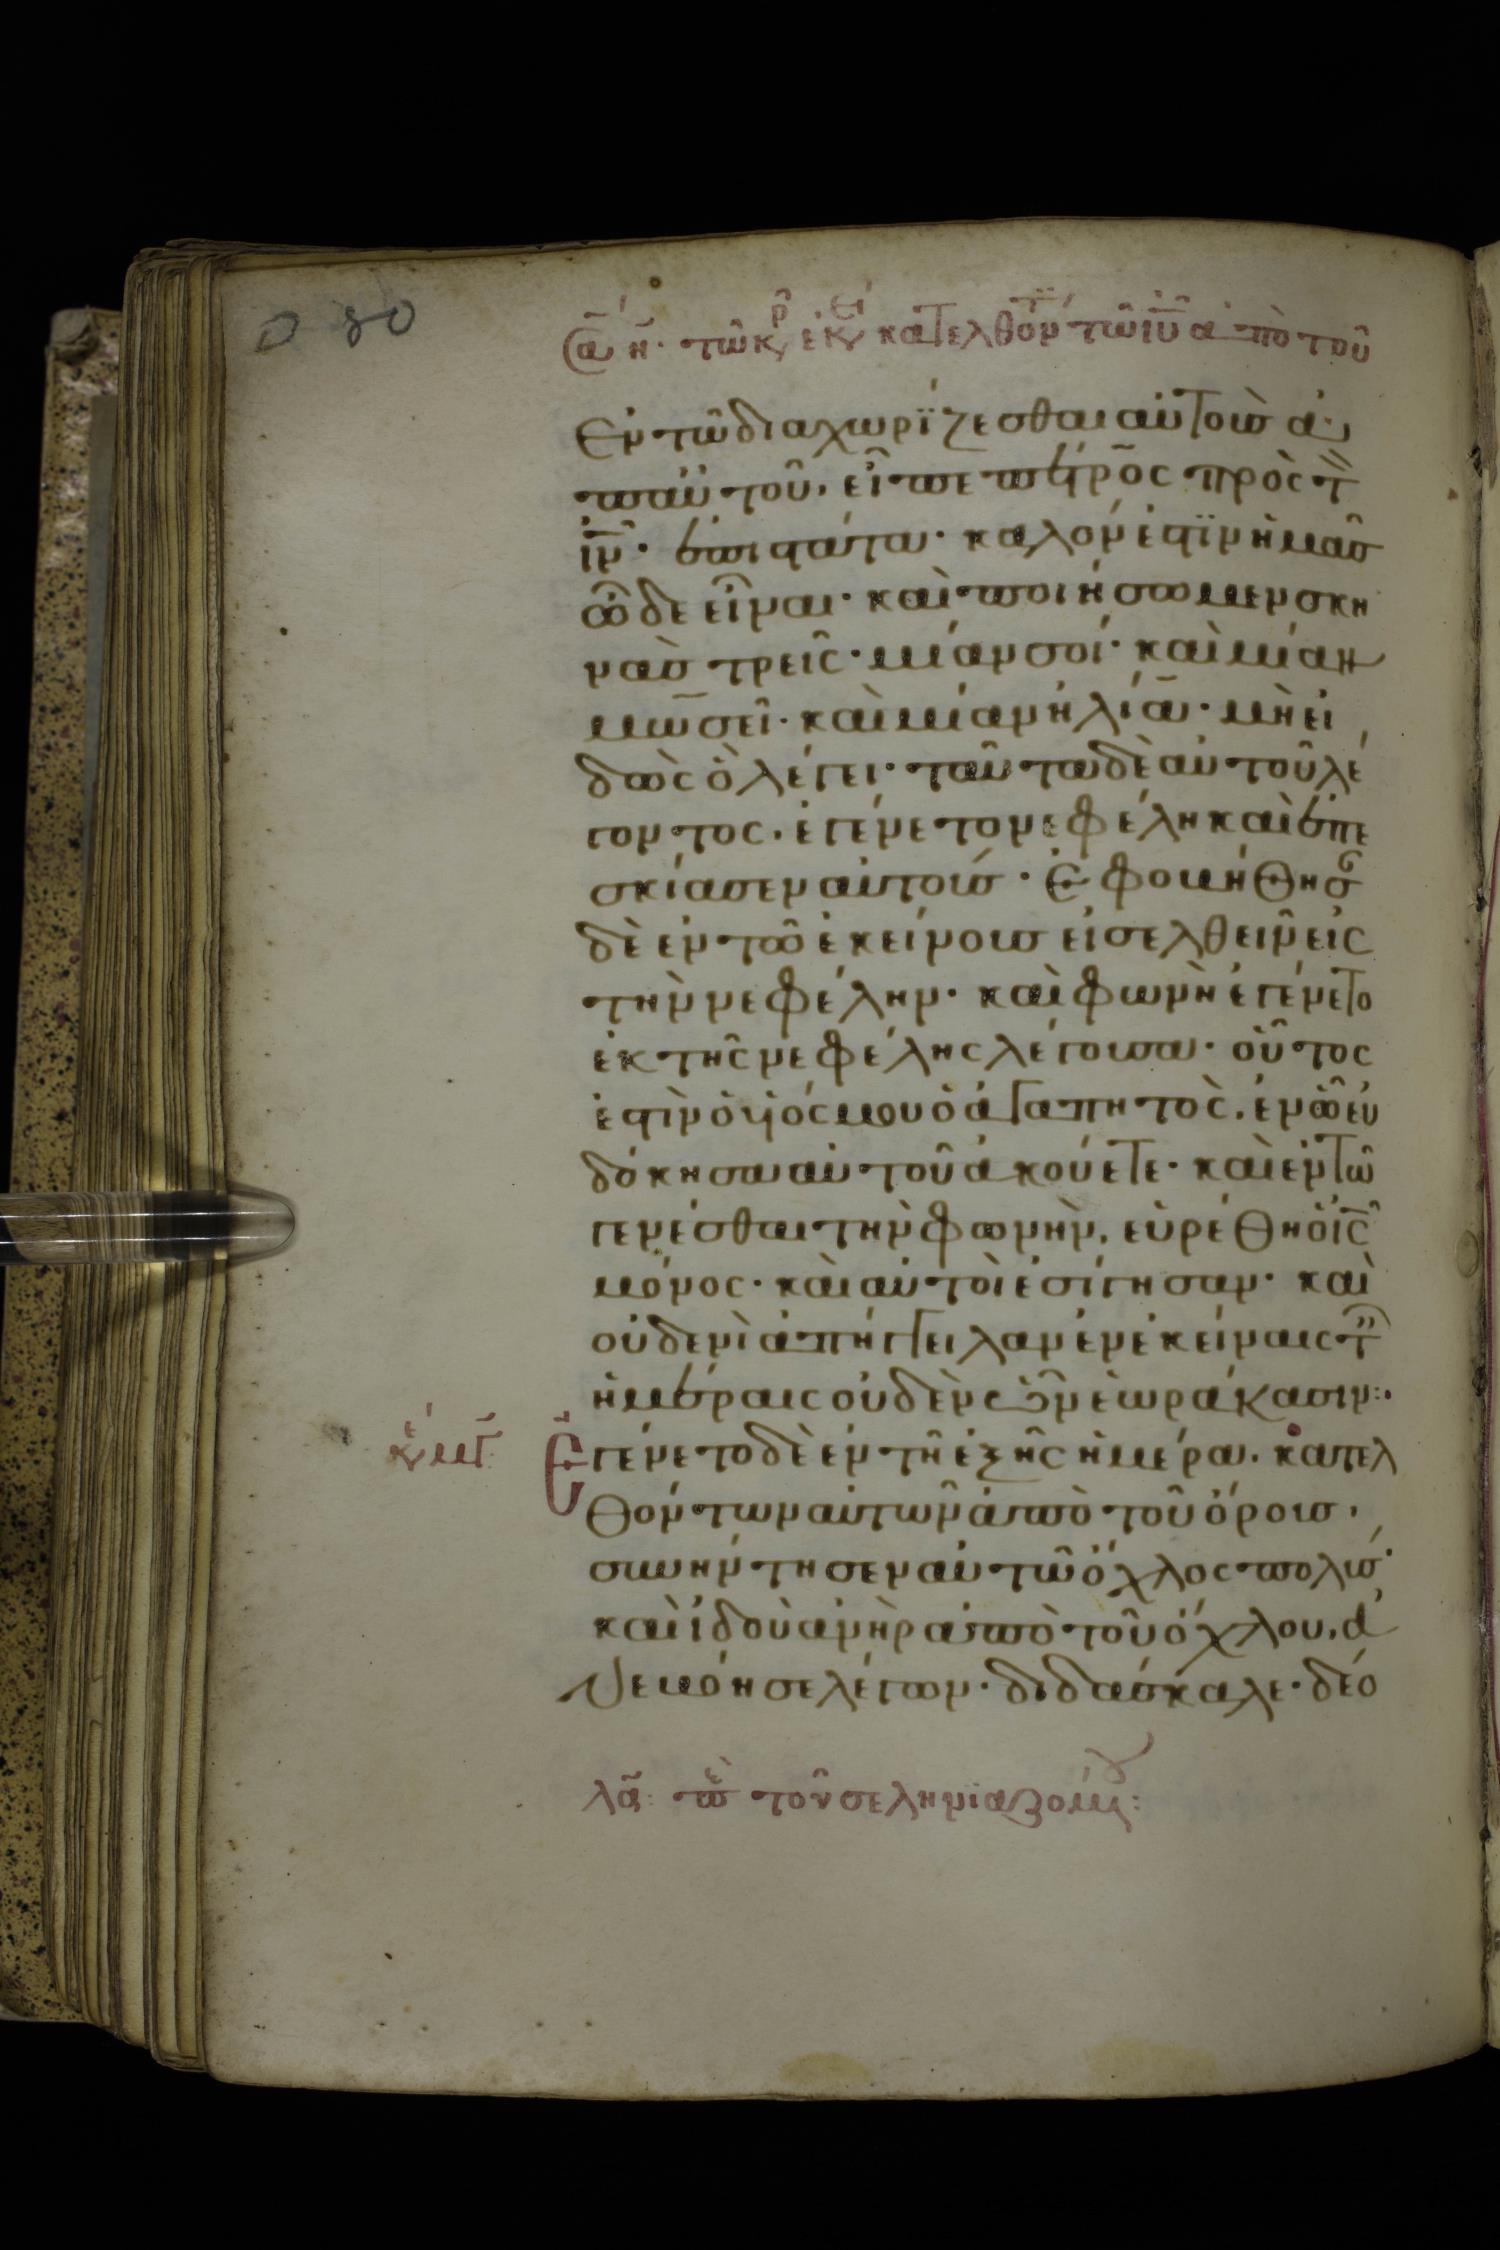 Σα η̅· τῶ κρ ἐκει κατελθόντι τῶ ιῦ ἀπὸ τοῦ
Ἐν τῶ διαχωρΐζεσθαι αὐτοὺσ ἀ
π αὐτοῦ, εἶπε πέτρος πρὸς τ
ιν̅· ἐπιστάτα· καλόν ἐστϊν ἡμᾶσ
ὧδε εἶναι· καὶ ποιήσωμεν σκη
νὰσ τρεῖς· μίαν σοί· καὶ μίαν
μω̅σεῖ· καὶ μίαν ἡλίᾱ· μὴ εἰ
δὼς ὃ λέγει· ταῦτα δὲ αὐτοῦ λέ
γοντος, ἐγένετο νεφέλη καὶ ἐπε
σκίασεν αὐτούσ· Ἐφοβήθησαν
δὲ ἐν τῶ ἐκείνουσ εἰσελθεῖν εἰς
τὴν νεφέλην· καὶ φωνὴ ἐγένετο
ἐκ τῆς νεφέλης λέγουσα· οὗτος
ἐστὶν ὁ υἱός μου ὁ ἀγαπητὸς, ἐν ὧ εὐ
δόκησα αὐτοῦ ἀκούετε· καὶ ἐν τῶ
γενέσθαι τὴν φωνὴν, εὑρέθη ὁ ις̅
μόνος· καὶ αὐτοὶ ἐσίγησαν· καὶ
οὐδενὶ ἀπήγγειλαν ἐν ἐκείναις τ
ἡμέραις οὐδὲν ὧν ἑωράκασιν:·
κ μγ. Ἐγένετο δὲ ἐν τῆ ἑξῆς ἡμέρα, κατελ
θόντων αὐτῶν ἀπὸ τοῦ ὄρουσ,
συνήντησεν αὐτῶ ὄχλος πολύσ·
καὶ ἰδοὺ ἀνὴρ ἀπὸ τοῦ ὄχλου, ἀ
νεβόησε λέγων· διδάσκαλε· δέο
λα̅: π τοῦ σεληνϊαζομ: